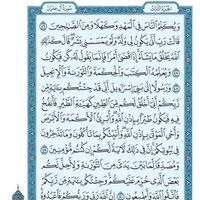 الجزء الثالث سورة آل عمران
وَيُكَلِّمُ ٱلنَّاسَ فِي ٱلْمَهْدِ وَكَهْلًا وَمِنَ ٱلصَّٰلِحِينَ ۝٤٦
قَالَتْ رَبِّ أَنَّىٰ يَكُونُ لِي وَلَدٌ وَلَمْ يَمْسَسْنِي بَشَرٌ قَالَ كَذَٰلِكِ
ٱللَّهُ يَخْلُقُ مَا يَشَآءُ إِذَا قَضَىٰٓ أَمْرًا فَإِنَّمَا يَقُولُ لَهُۥ كُن فَيَكُونُ
۝٤٧ وَيُعَلِّمُهُ ٱلْكِتَٰبَ وَٱلْحِكْمَةَ وَٱلتَّوْرَىٰةَ وَٱلْإِنجِيلَ
۝٤٨ وَرَسُولًا إِلَىٰ بَنِيٓ إِسْرَٰٓءِيلَ أَنِّي قَدْ جِئْتُكُم بِـَٔايَةٍ مِّن
رَّبِّكُمْ أَنِّيٓ أَخْلُقُ لَكُم مِّنَ ٱلطِّينِ كَهَيْـَٔةِ ٱلطَّيْرِ فَأَنفُخُ
فِيهِ فَيَكُونُ طَيْرًۢا بِإِذْنِ ٱللَّهِ وَأُبْرِئُ ٱلْأَكْمَهَ وَٱلْأَبْرَصَ
وَأُحْيِ ٱلْمَوْتَىٰ بِإِذْنِ ٱللَّهِ وَأُنَبِّئُكُم بِمَا تَأْكُلُونَ وَمَا تَدَّخِرُونَ
فِي بُيُوتِكُمْ إِنَّ فِي ذَٰلِكَ لَـَٔايَةً لَّكُمْ إِن كُنتُم مُّؤْمِنِينَ ۝٤٩
وَمُصَدِّقًا لِّمَا بَيْنَ يَدَيَّ مِنَ ٱلتَّوْرَىٰةِ وَلِأُحِلَّ لَكُم
بَعْضَ ٱلَّذِي حُرِّمَ عَلَيْكُمْ وَجِئْتُكُم بِـَٔايَةٍ مِّن رَّبِّكُمْ
فَٱتَّقُوا۟ ٱللَّهَ وَأَطِيعُونِ ۝٥٠ إِنَّ ٱللَّهَ رَبِّي وَرَبُّكُمْ فَٱعْبُدُوهُ